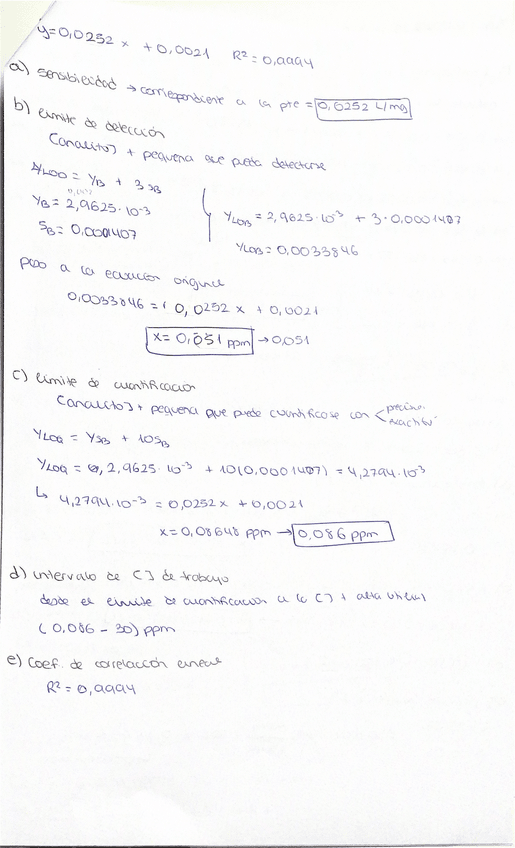 y=0,0252x + 0,0021 R²=0,9994
a) sensibilidad → correspondiente a la pte = 0,0252 L/mg
b) límite de detección
[analito] + pequeña que pueda detectarse
yLOD = yB + 3sB
yB = 2,9625·10⁻³
sB = 0,0001407
yLOD = 2,9625·10⁻³ + 3·0,0001407
yLOD = 0,0033846
paso a la ecuación original
0,0033846 = 0,0252x + 0,0021
x = 0,051 ppm → 0,051
c) límite de cuantificación
[analito] + pequeña que puede cuantificarse con < precisión
exactitud
yLOQ = ySB + 10SB
yLOQ = 2,9625·10⁻³ + 10(0,0001407) = 4,2794·10⁻³
↳ 4,2794·10⁻³ = 0,0252x + 0,0021
x = 0,08648 ppm → 0,086 ppm
d) intervalo de [] de trabajo
desde el límite de cuantificación a la [] + alta lineal
(0,086 - 30) ppm
e) Coef. de correlación lineal
R² = 0,9994